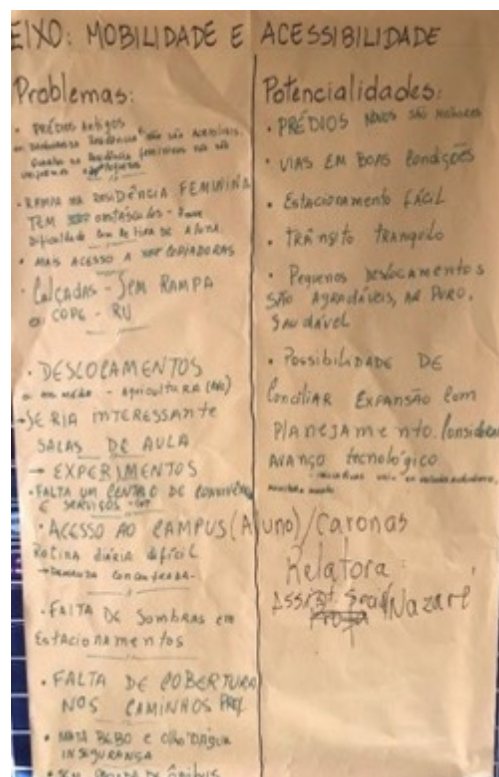 EIXO: MOBILIDADE E ACESSIBILIDADE
Problemas:
• PRÉDIOS Antigos
não são Acessíveis.
femininas não são
• RAMPA NA RESIDÊNCIA FEMININA
TEM obstáculos -
Dificuldade
• MAIS ACESSO A COPIADORAS
• Calçadas - SEM RAMPA
COPE - RU
• DESLOCAMENTOS
- agricultura
→ SERIA INTERESSANTE
SALAS DE AULA
→ EXPERIMENTOS
• FALTA UM CENTRO DE
E SERVIÇOS
• ACESSO AO CAMPUS (Aluno)/Caronas
Rotina diária difícil
→ concentrada.
• FALTA DE Sombras em
Estacionamentos
• FALTA DE COBERTURA
NOS CAMINHOS
• MATA BEBO E Olho D'ÁGUA
INSEGURANÇA
• SEM DE ônibus
Potencialidades:
• PRÉDIOS NOVOS são melhores
• VIAS EM BOAS Condições
• Estacionamento FÁCIL
• TRÂNSITO TRANQUILO
• Pequenos deslocamentos
SÃO AGRADÁVEIS, AR PURO,
SAUDÁVEL
• Possibilidade DE
Conciliar EXPANSÃO Com
Planejamento.
AVANÇO tecnológico
Relatora:
Nazaré